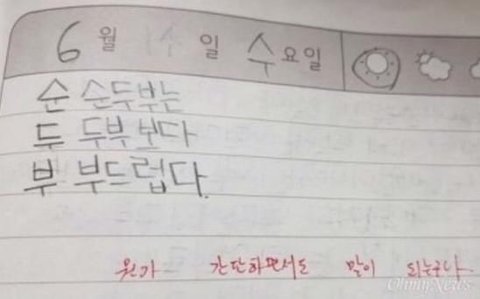 6월 일 수요일
순 순두부는
두 두부보다
부 부드럽다.
뭔가 간단하면서도 말이 되는구나
OhmyNews